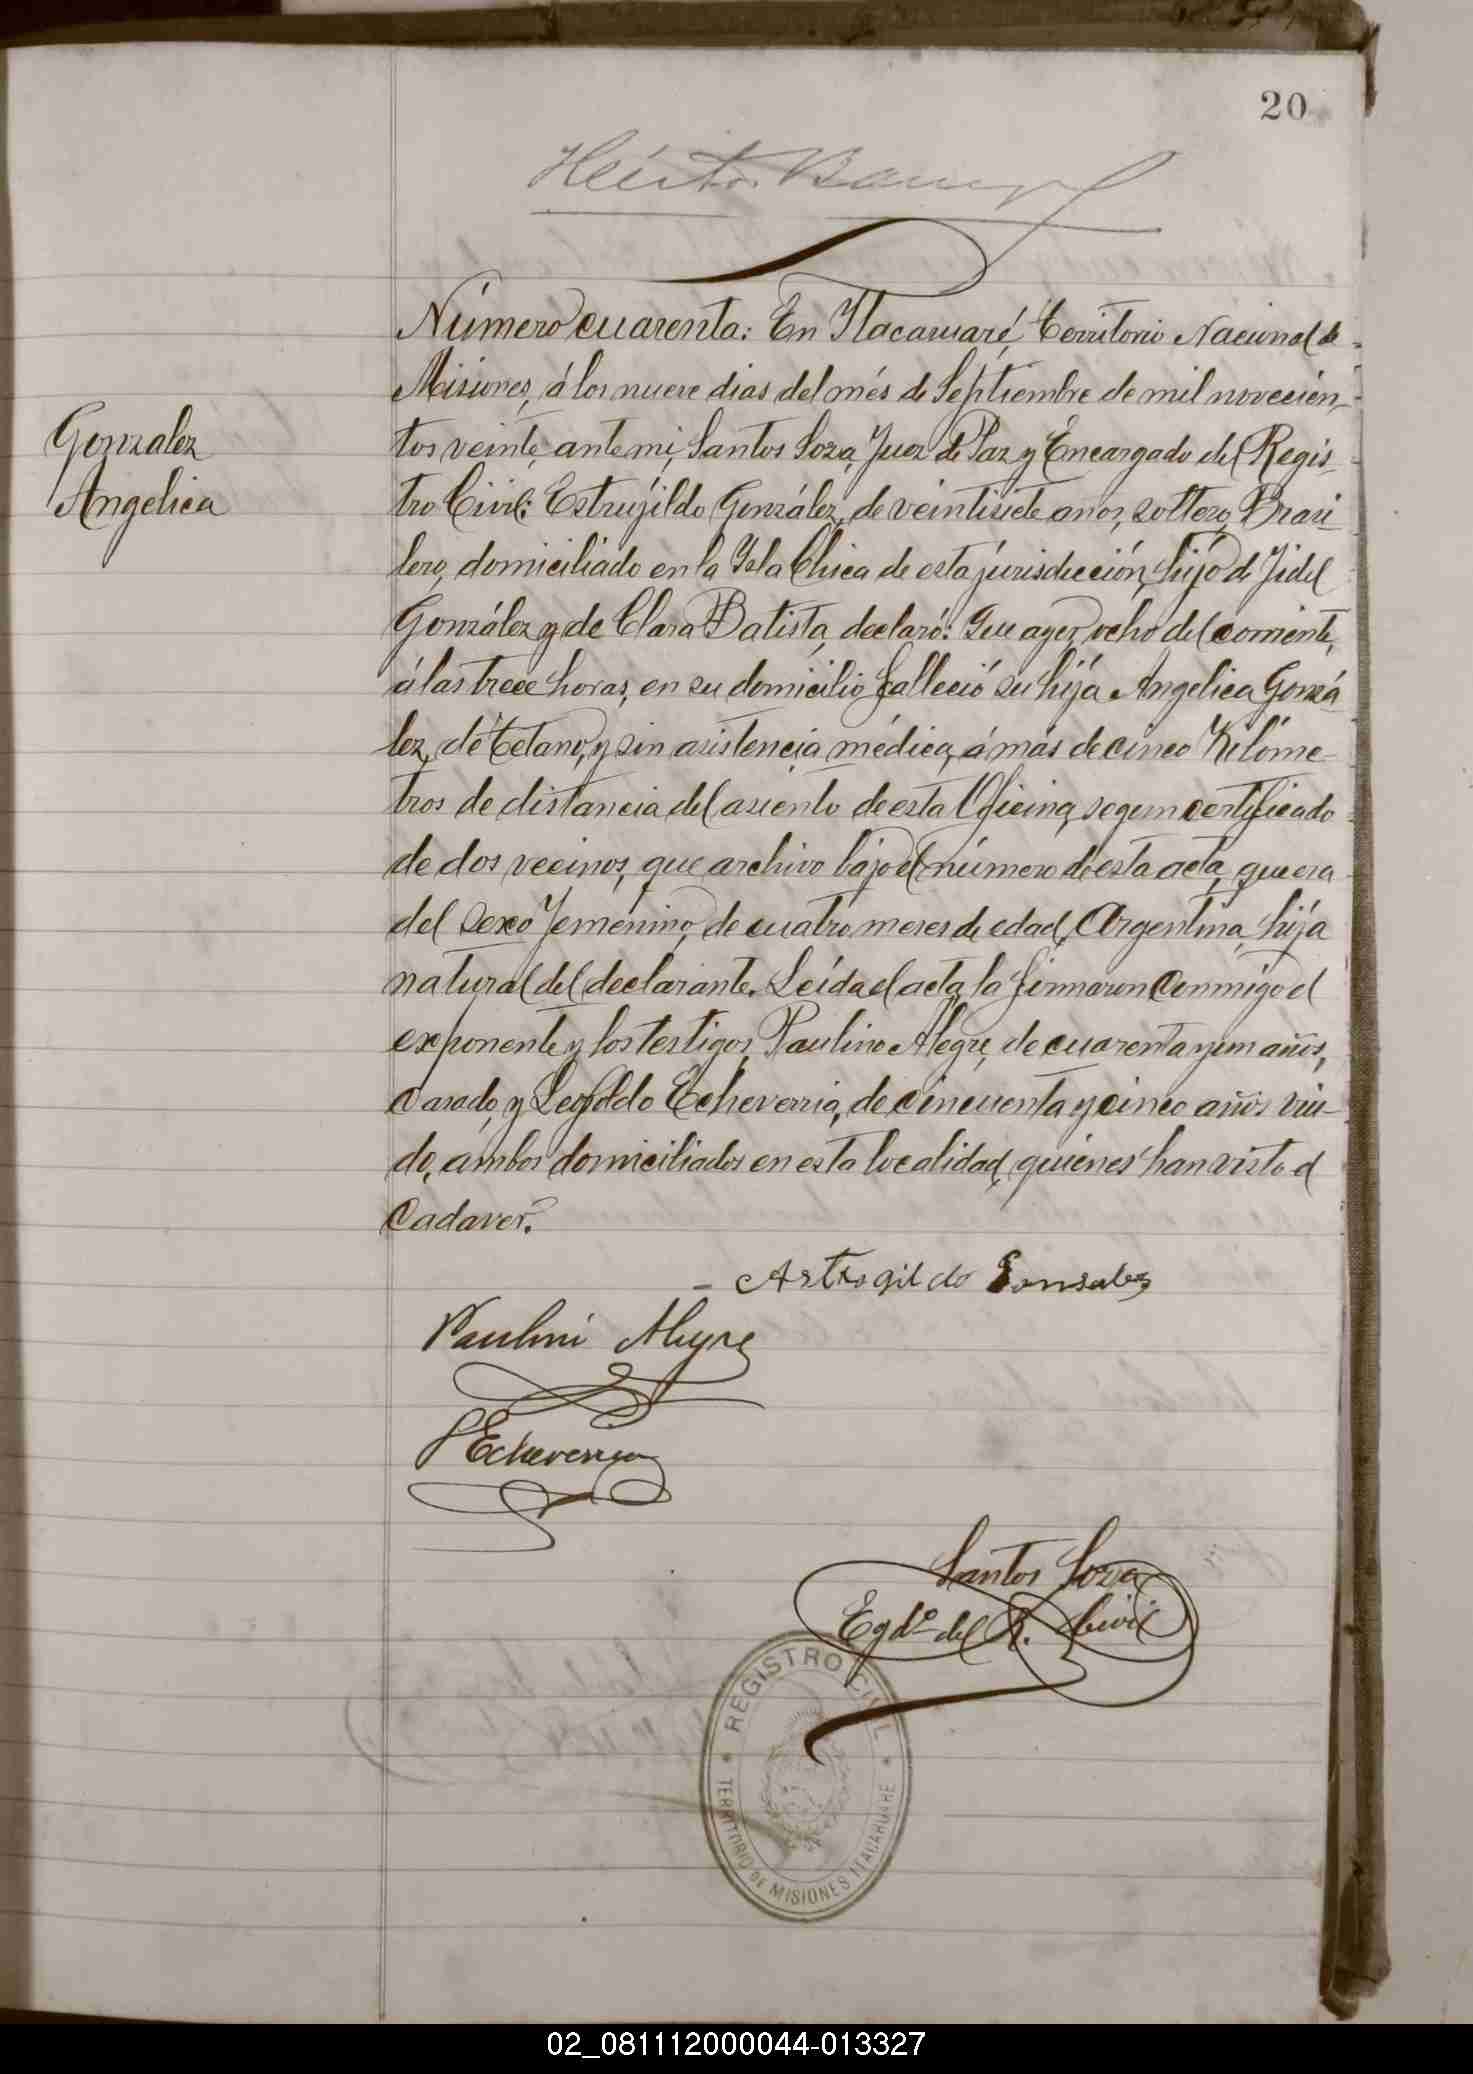 20
Héctor
Número cuarenta: En Itacaruaré, Territorio Nacional de
Misiones, á los nueve dias del més de Septiembre de mil novecien-
Gonzalez
Angelica
tos veinte, ante mi, Santos Soza, Juez de Paz y Encargado del Regis-
tro Civil: Estrugildo González, de veintisiete años, soltero, Brasi-
lero, domiciliado en la Isla Chica de esta jurisdicción, hijo de Fidel
González y de Clara Batista, declaró: Que ayer, ocho del corriente,
á las trece horas, en su domicilio falleció su hija Angelica Gonzá-
lez, de Tetano, y sin asistencia médica, á más de cinco Kilóme-
tros de distancia del asiento de esta Oficina, segun certificado
de dos vecinos, que archivo bajo el número de esta acta, que era
del sexo femenino, de cuatro meses de edad, Argentina, hija
natural del declarante. Leída el acta, la firmaron conmigo el
exponente y los testigos, Paulino Alegre, de cuarenta y un años,
casado, y Leopoldo Echeverria, de cincuenta y cinco años viu-
do, ambos domiciliados en esta localidad, quienes han visto el
cadaver.
- Astrogildo Gonsalez
Paulino Alegre
Echeverria
Santos Soza
Egdº del R. Civil
REGISTRO CIVIL
TERRITORIO DE MISIONES ITACARUARE
02_081112000044-013327